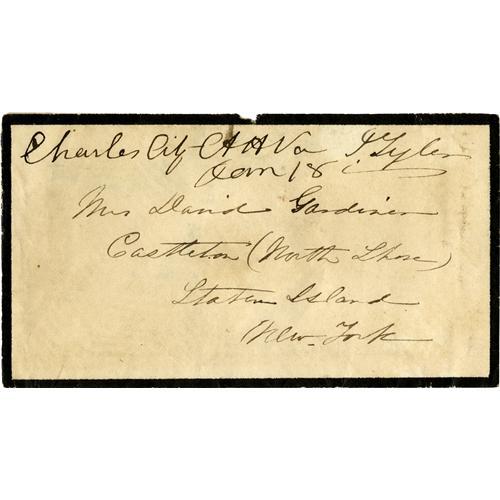 Charles City Ct H Va J. Tyler
Jan 18
Mrs David Gardiner
Castleton (North Shore)
Staten Island
New-York